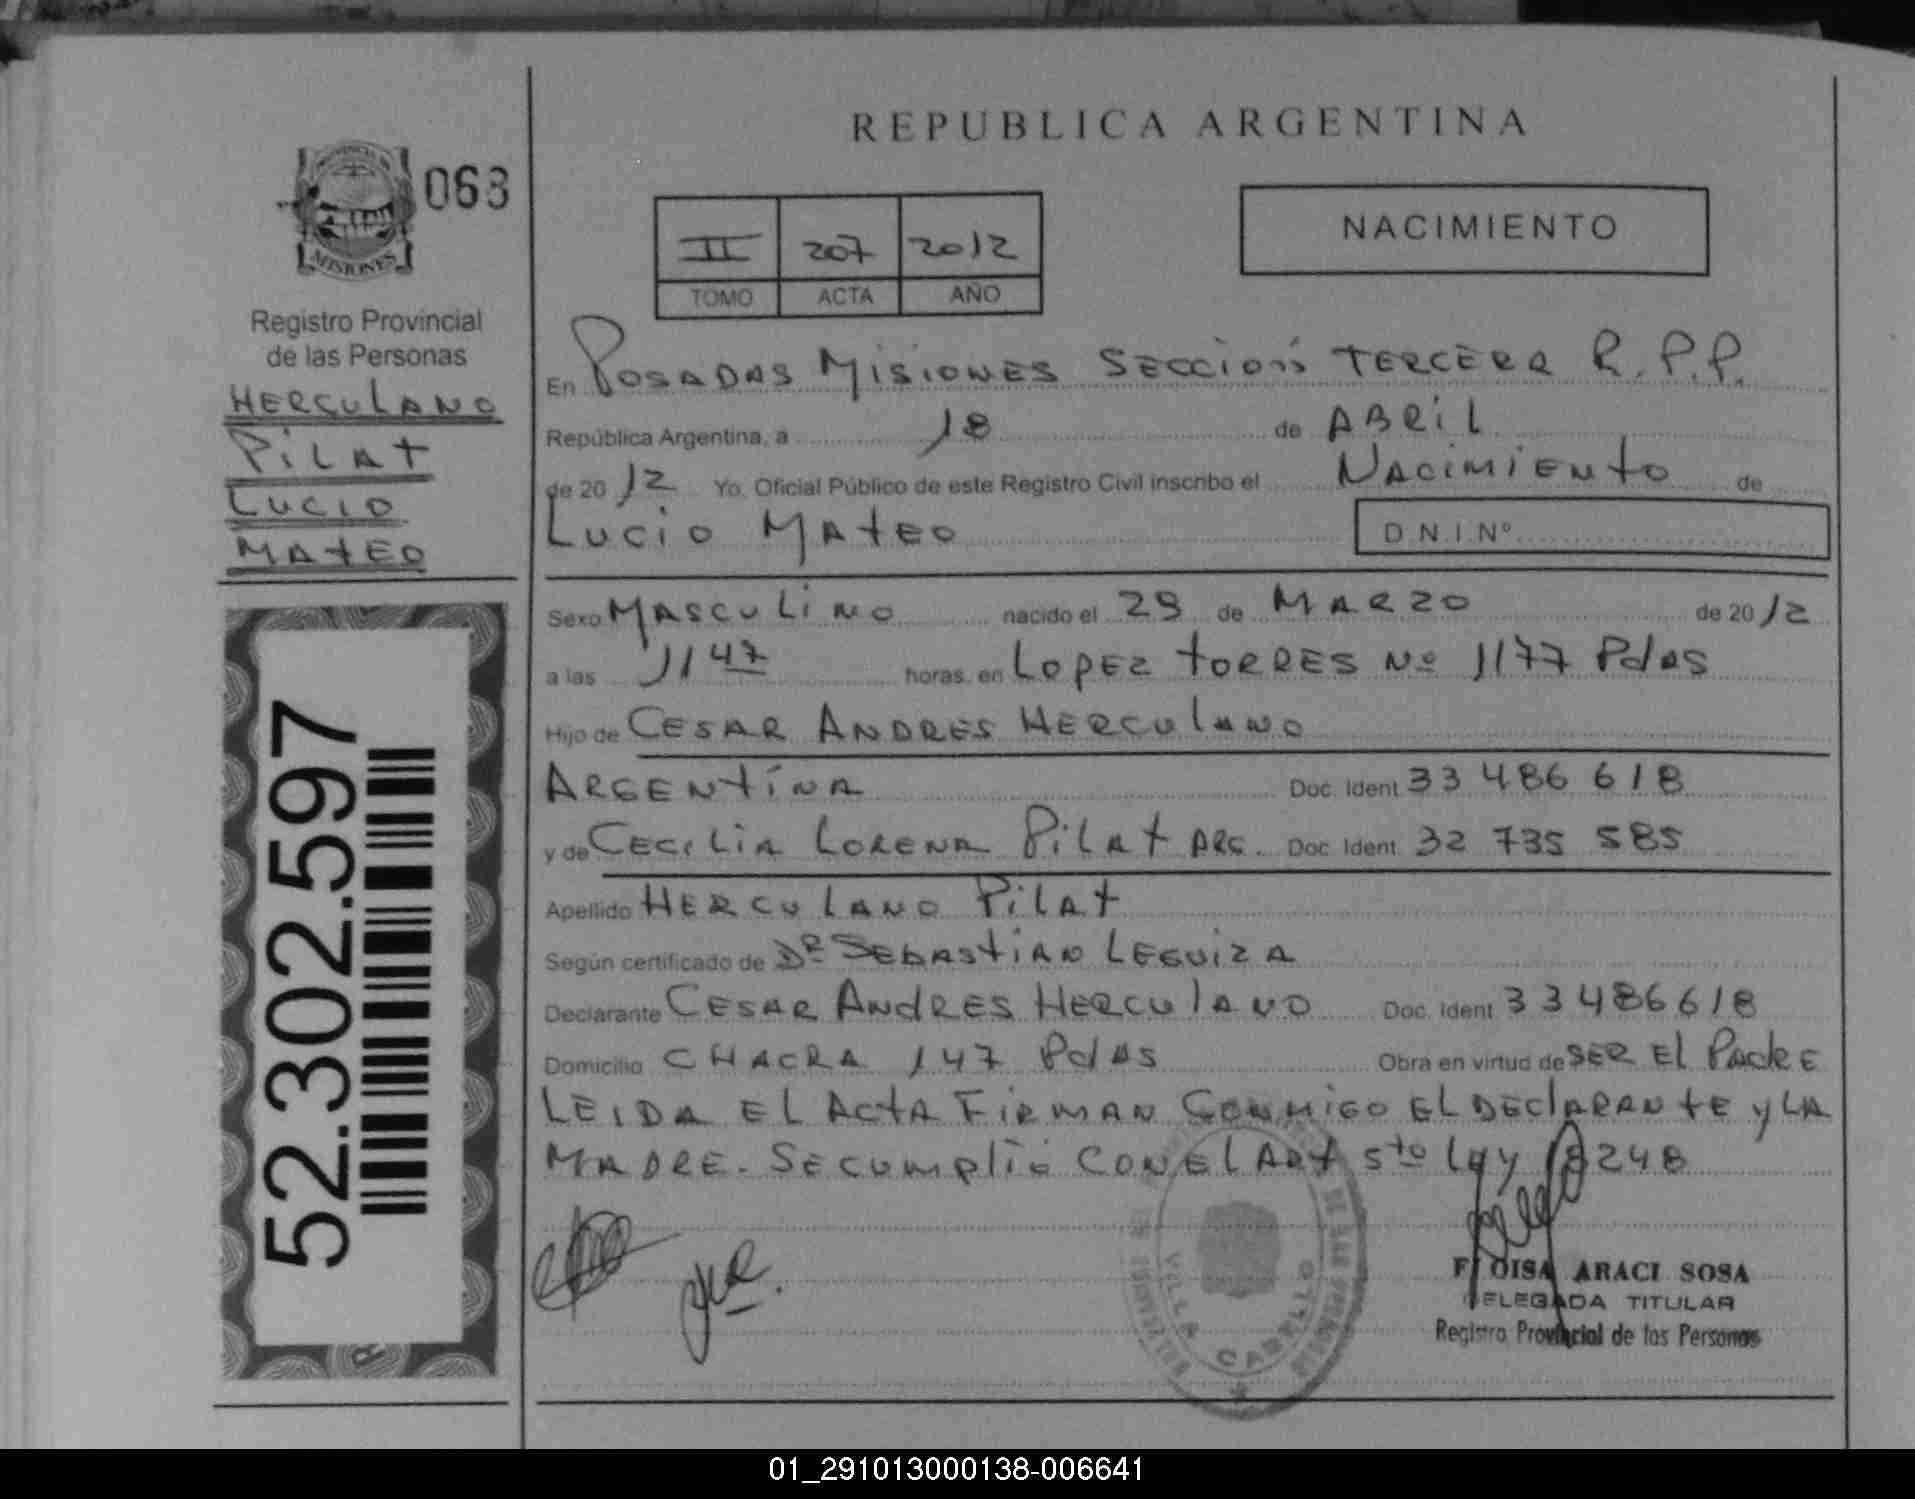 REPUBLICA ARGENTINA
068
NACIMIENTO
II 207 2012
TOMO ACTA AÑO
MISIONES
Registro Provincial
de las Personas
HERCULANO
PILAT
LUCIO
MATEO
En POSADAS MISIONES SECCION TERCERA R.P.P.
República Argentina, a 18 de ABRIL
de 2012 Yo. Oficial Público de este Registro Civil inscribo el NACIMIENTO de
LUCIO MATEO
D.N.I.Nº
Sexo MASCULINO nacido el 29 de MARZO de 2012
a las 11 47 horas, en LOPEZ TORRES Nº 1177 Pdas
Hijo de CESAR ANDRES HERCULANO
ARGENTINA Doc. Ident 33 486 618
y de CECILIA LORENA PILAT ARG. Doc. Ident 32 735 585
Apellido HERCULANO PILAT
Según certificado de DR SEBASTIAN LEGUIZA
Declarante CESAR ANDRES HERCULANO Doc. Ident 33486618
Domicilio CHACRA 147 Pdas Obra en virtud de SER El PadRE
LEIDA EL ACTA FIRMAN CONMIGO EL DEClARANTE y LA
MADRE. SE CUMPLIÓ CON EL ART 5to Ley 18248
VILLA CABELLO
ARACI SOSA
DELEGADA TITULAR
Registro Provincial de las Personas
52.302.597
01_291013000138-006641